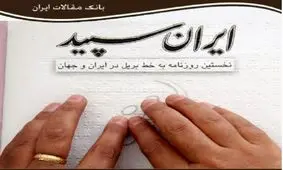 بانک مقالات ایران
ایران سپید
نخستین روزنامه به خط بریل در ایران و جهان